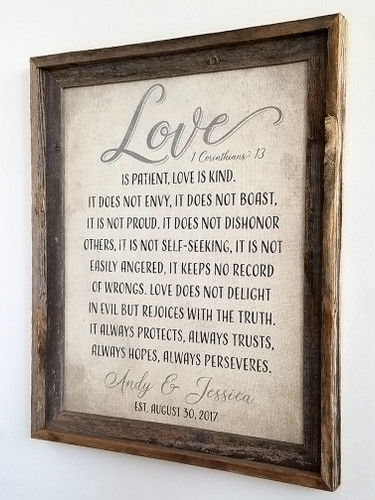 Love
1 Corinthians 13
IS PATIENT, LOVE IS KIND.
IT DOES NOT ENVY, IT DOES NOT BOAST,
IT IS NOT PROUD. IT DOES NOT DISHONOR
OTHERS, IT IS NOT SELF-SEEKING, IT IS NOT
EASILY ANGERED, IT KEEPS NO RECORD
OF WRONGS. LOVE DOES NOT DELIGHT
IN EVIL BUT REJOICES WITH THE TRUTH.
IT ALWAYS PROTECTS, ALWAYS TRUSTS,
ALWAYS HOPES, ALWAYS PERSEVERES.
Andy & Jessica
EST. AUGUST 30, 2017